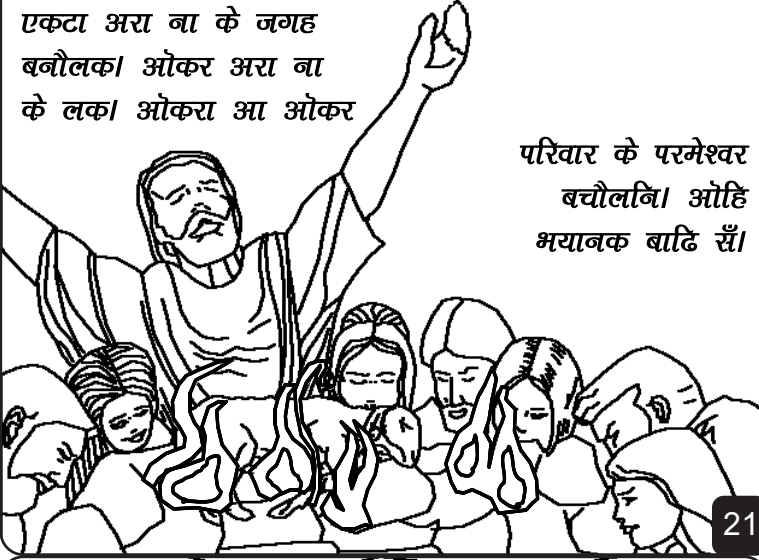 एकटा अरा ना के जगह
बनौलक। ओकर अरा ना
के लक। ओकरा आ ओकर
परिवार के परमेश्वर
बचौलनि। ओहि
भयानक बाढि सँ।
21